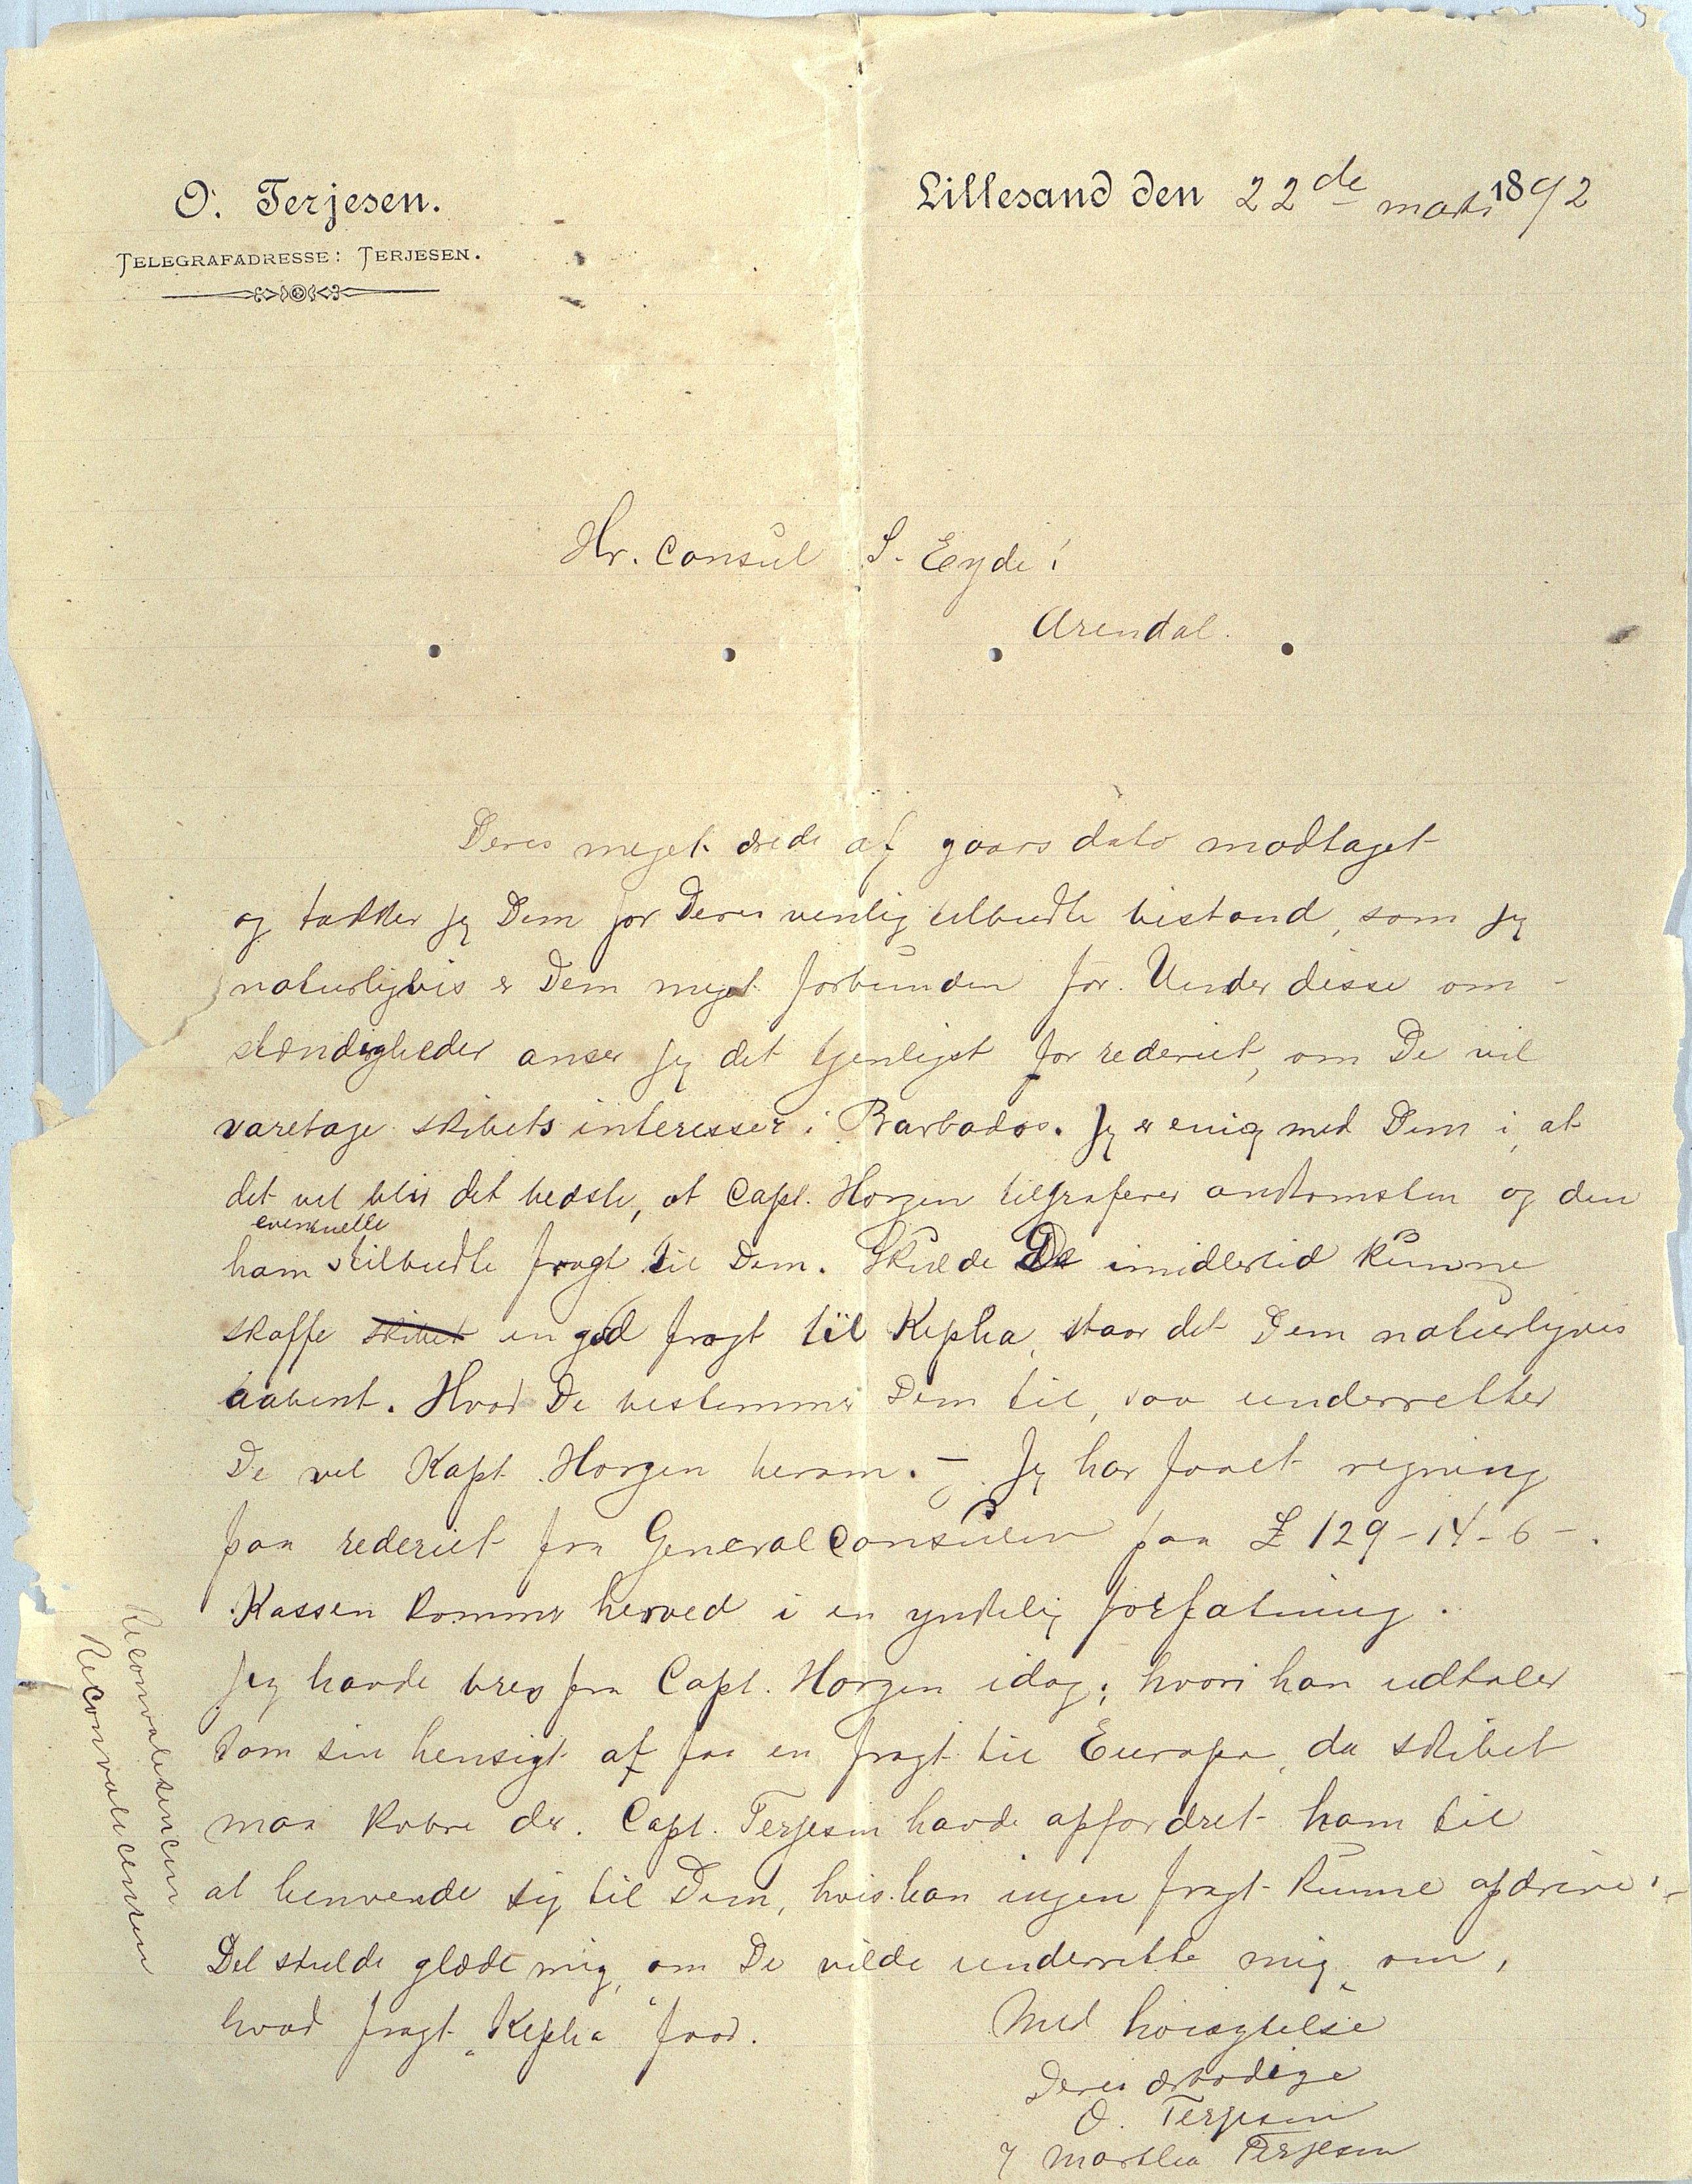 O. Terjesen.
TELEGRAFADRESSE: TERJESEN.
Lillesand den 22de marts 1892
Hr. Consul S. Eyde!
Arendal.
Deres meget ærede af gaars dato modtaget
og takker jeg Dem for Deres venlig tilbudte bistand, som jeg
naturligvis er Dem meget forbunden for. Under disse om-
stændigheder anser jeg det tjenligst for rederiet, om De vil
varetage skibets interesser i Barbados. Jeg er enig med Dem i, at
det vel blir det bedste, at Capt. Horgen telgraferer ankomsten og den
eventuelle
ham tilbudte fragt til Dem. Skulde De imidlertid kunne
skaffe skibet en god fragt til Kepha, staar det Dem naturligvis
aabent. Hvad De bestemmer Dem til, saa underretter
De vel Kapt. Horgen herom. – Jeg har faaet regning
paa rederiet fra Generalconsulen paa £ 129-14-6-.
Kassen kommer herved i en ynkelig forfatning.
Jeg havde brev fra Capt. Horgen idag, hvori han udtaler
som sin hensigt at faa en fragt til Europa, da skibet
maa kobre der. Capt. Terjesen havde opfordret ham til
at henvende sig til Dem, hvis han ingen fragt kunne opdrive.-
Det skulde glæde mig, om De vilde underrette mig om,
hvad fragt „Kepha“ faar.
Med høiagtelse
Deres ærbødige
O. Terjesen
/ Marthea Terjesen
Reconvalesencen
Reconvalecensen